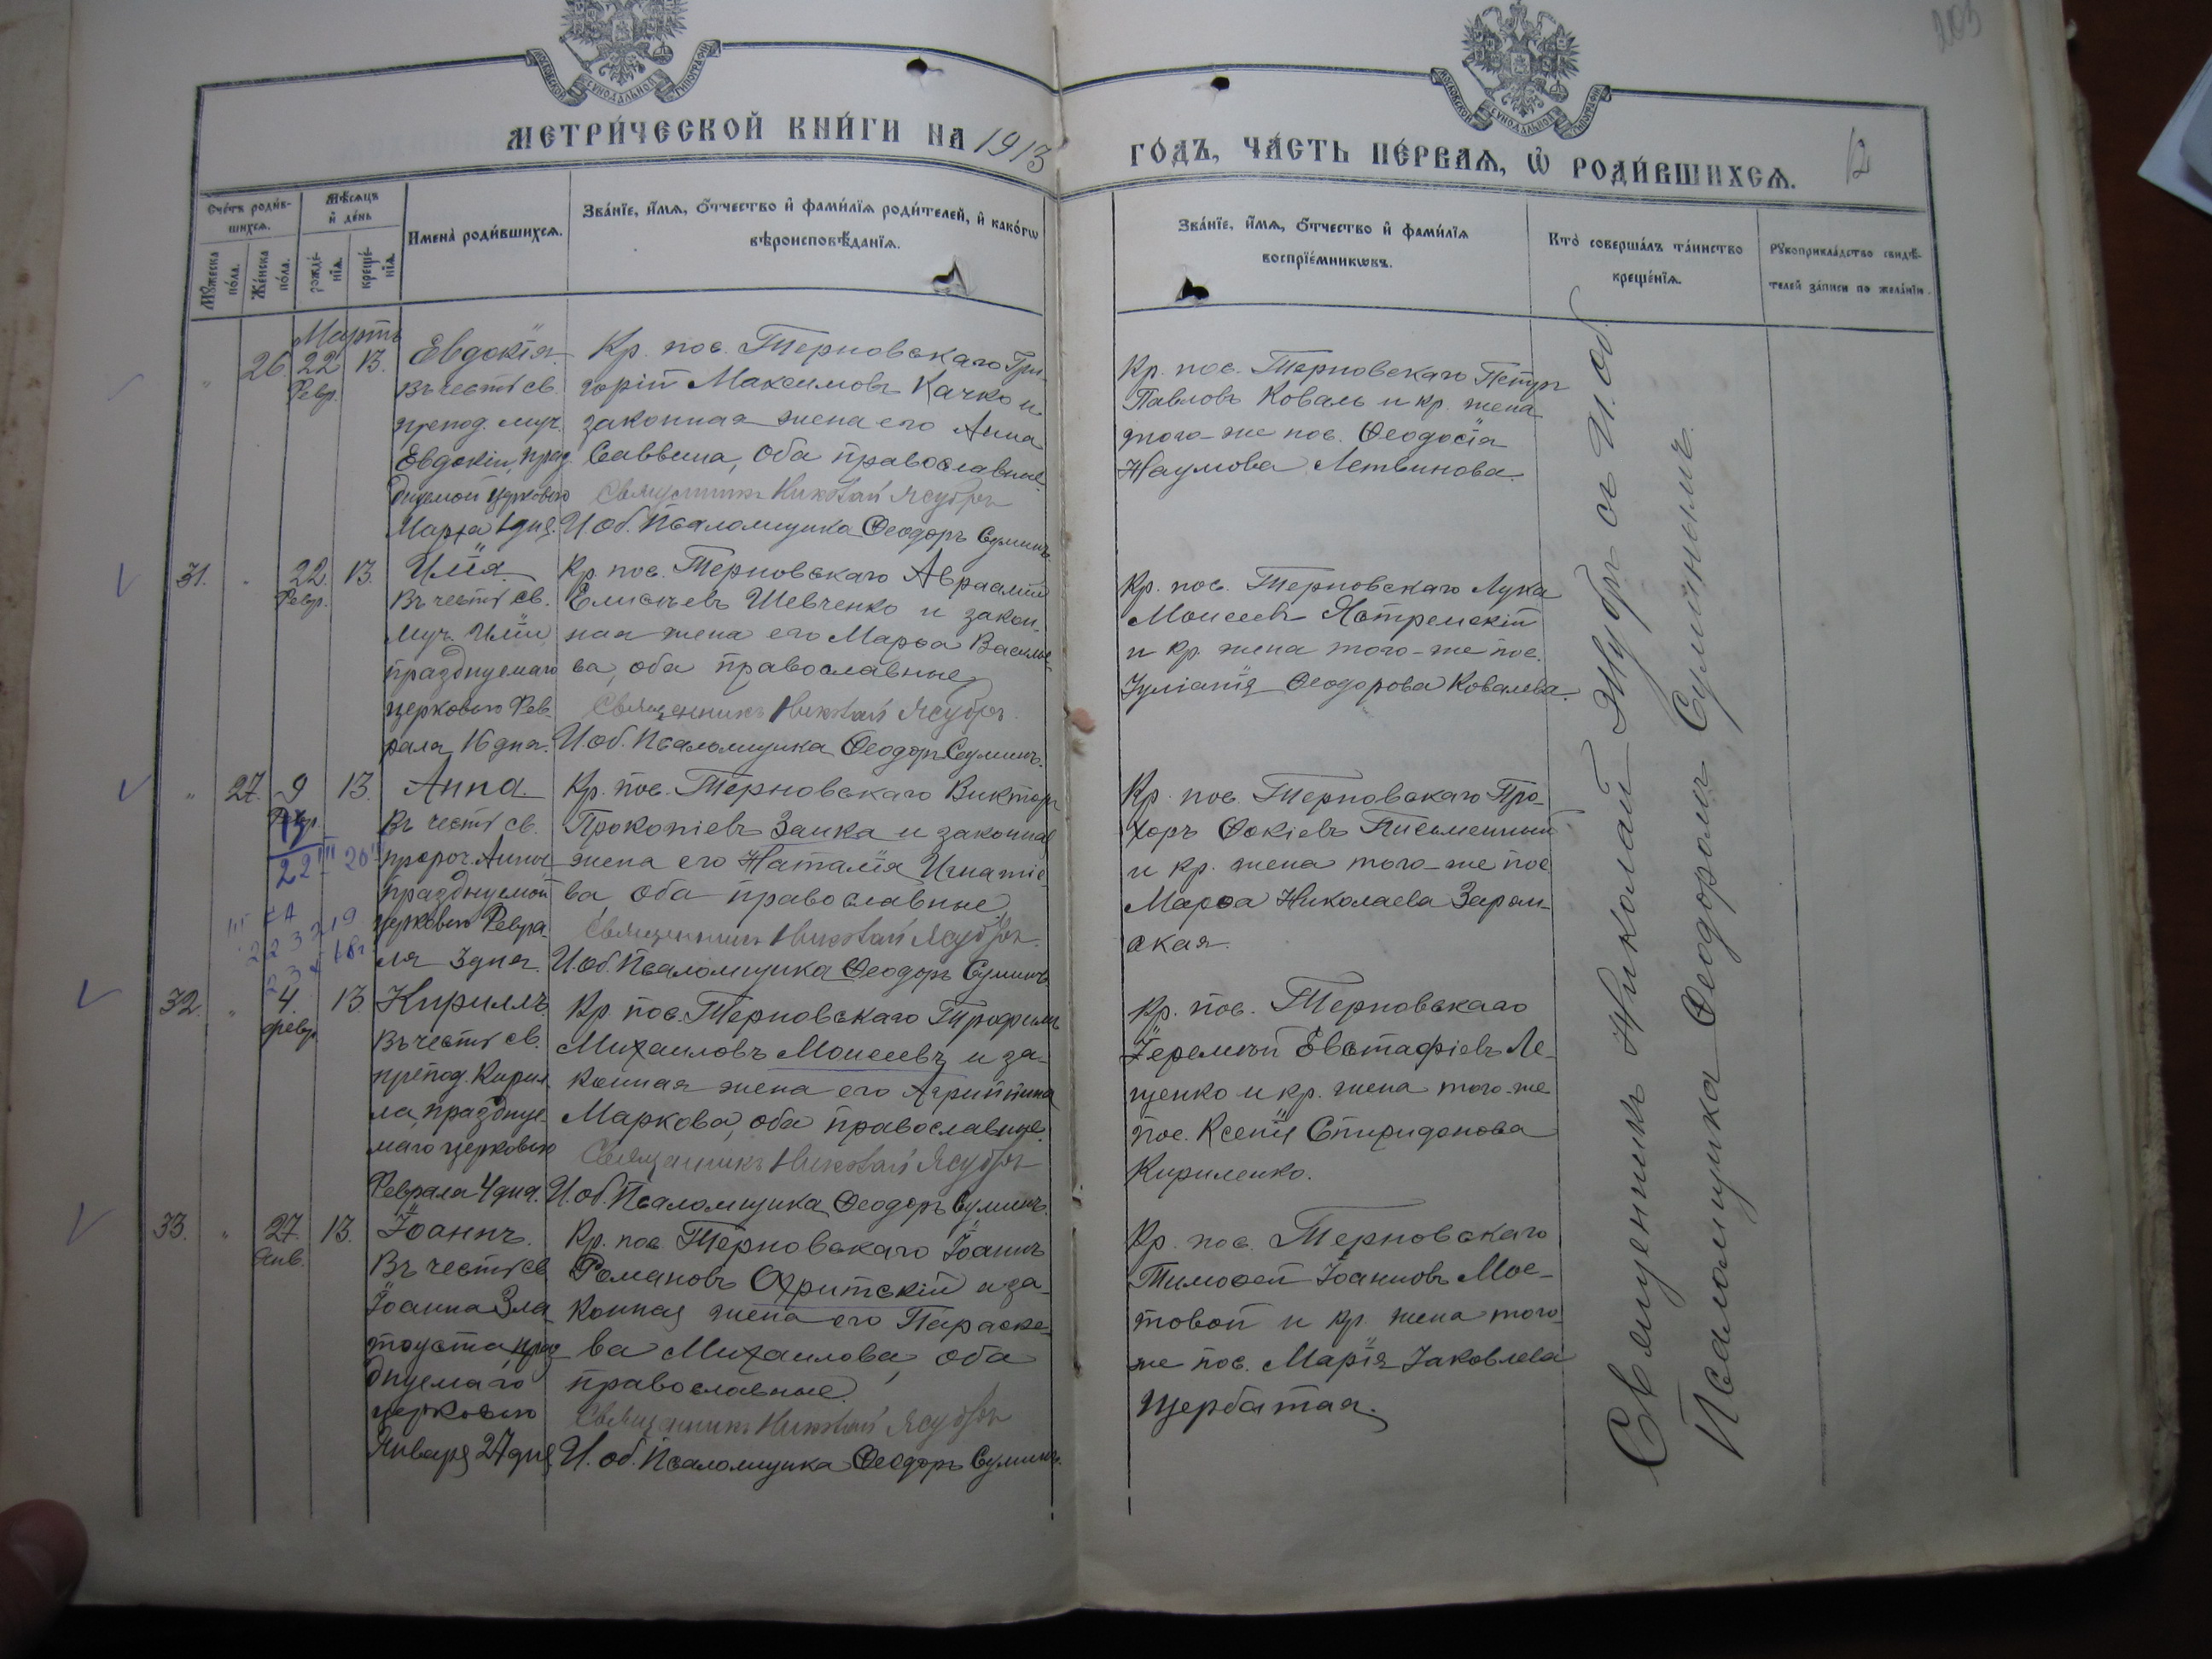 203
МЕТРИ́ЧЕСКОЙ КНИ́ГИ НА 1913
ГО́ДЪ, ЧА́СТЬ ПЕ́РВАѦ, Ѿ РОДИ́ВШИХСѦ.
12
Сче́тъ роди́в-
шихсѧ.
Мꙋжеска
по́ла.
Же́нска
по́ла.
Мѣсѧцъ
и де́нь
рожде́-
нїѧ.
креще́-
нїѧ.
Имена̀ роди́вшихсѧ.
Зва́нїе, и́мѧ, о́тчество и фами́лїѧ роди́телей, и како́гѡ
вѣроисповѣ́данїѧ.
Зва́нїе, и́мѧ, о́тчество и фами́лїѧ
воспрїе́мникѡвъ.
Кто̀ соверша́лъ та́инство
креще́нїѧ.
Рꙋкоприкла́дство свидѣ́-
телей за́писи по жела́нїю.
Мартъ
26 22 13.
Февр.
Евдокія.
Въ честь св.
препод. муч.
Евдокіи, праз
днуемой церковію
Марта 1 дня.
Кр. пос. Терновскаго Гри-
горій Максимовъ Качко и
законная жена его Анна
Саввина, оба православные.
Священникъ Николай Ясубръ
И. об. Псаломщика Ѳеодоръ Сулинъ.
Кр. пос. Терновскаго Петръ
Павловъ Коваль и кр. жена
того-же пос. Ѳеодосія
Наумова Летвинова.
31. 22. 13.
Февр.
Илія.
Въ честь св.
муч. Иліи
празднуемаго
церковію Фев-
раля 16 дня.
Кр. пос. Терновскаго Авраамій
Елисеевъ Шевченко и закон-
ная жена его Марѳа Василье-
ва, оба православные
Священникъ Николай Ясубръ
И. об. Псаломщика Ѳеодоръ Сулинъ.
Кр. пос. Терновскаго Лука
Моисеевъ Ястремскій
и кр. жена того-же пос.
Іуліанія Ѳеодорова Ковалева.
27. 9 13.
Февр.
22 III 20
Анна.
Въ честь св.
пророч. Анны
празднуемой
церковію Февра-
ля 3 дня.
Кр. пос. Терновскаго Викторъ
Прокопіевъ Заика и законная
жена его Наталія Игнатіе-
ва, оба православные
Священникъ Николай Ясубръ.
И. об. Псаломщика Ѳеодоръ Сулинъ
Кр. пос. Терновскаго Про-
хоръ Ѳокіевъ Письменный
и кр. жена того-же пос
Марѳа Николаева Зарем-
ская.
32. 4. 13
февр
Кириллъ
Въ честь св.
препод. Кирил
ла, праздну-
маго церковію
Февраля 4 дня.
Кр. пос. Терновскаго Трофимъ
Михаиловъ Моисеевъ и за-
конная жена его Агриппина
Маркова, оба православные.
Священникъ Николай Ясубръ
И. об. Псаломщика Ѳеодоръ Сулинъ.
Кр. пос. Терновскаго
Іеремій Евстафіевъ Ле-
щенко и кр. жена того-же
пос. Ксенія Спиридонова
Кириленко.
33. 27. 13.
Янв.
Іоаннъ.
Въ честь св
Іоанна Зла-
тоуста праз
днуемаго
церковію
Января 27 дня
Кр. пос. Терновскаго Іоаннъ
Романовъ Охритскій и за-
конная жена его Параске-
ва Михаилова, оба
православные.
Священникъ Николай Ясубръ
И. об. Псаломщика Ѳеодоръ Сулинъ.
Кр. пос. Терновскаго
Тимоѳей Іоанновъ Мос-
товой и кр. жена того-
же пос. Марія Іаковлева
Щербатая.
Священникъ Николай Ясубръ съ И. об.
Псаломщика Ѳеодоромъ Сулинымъ.